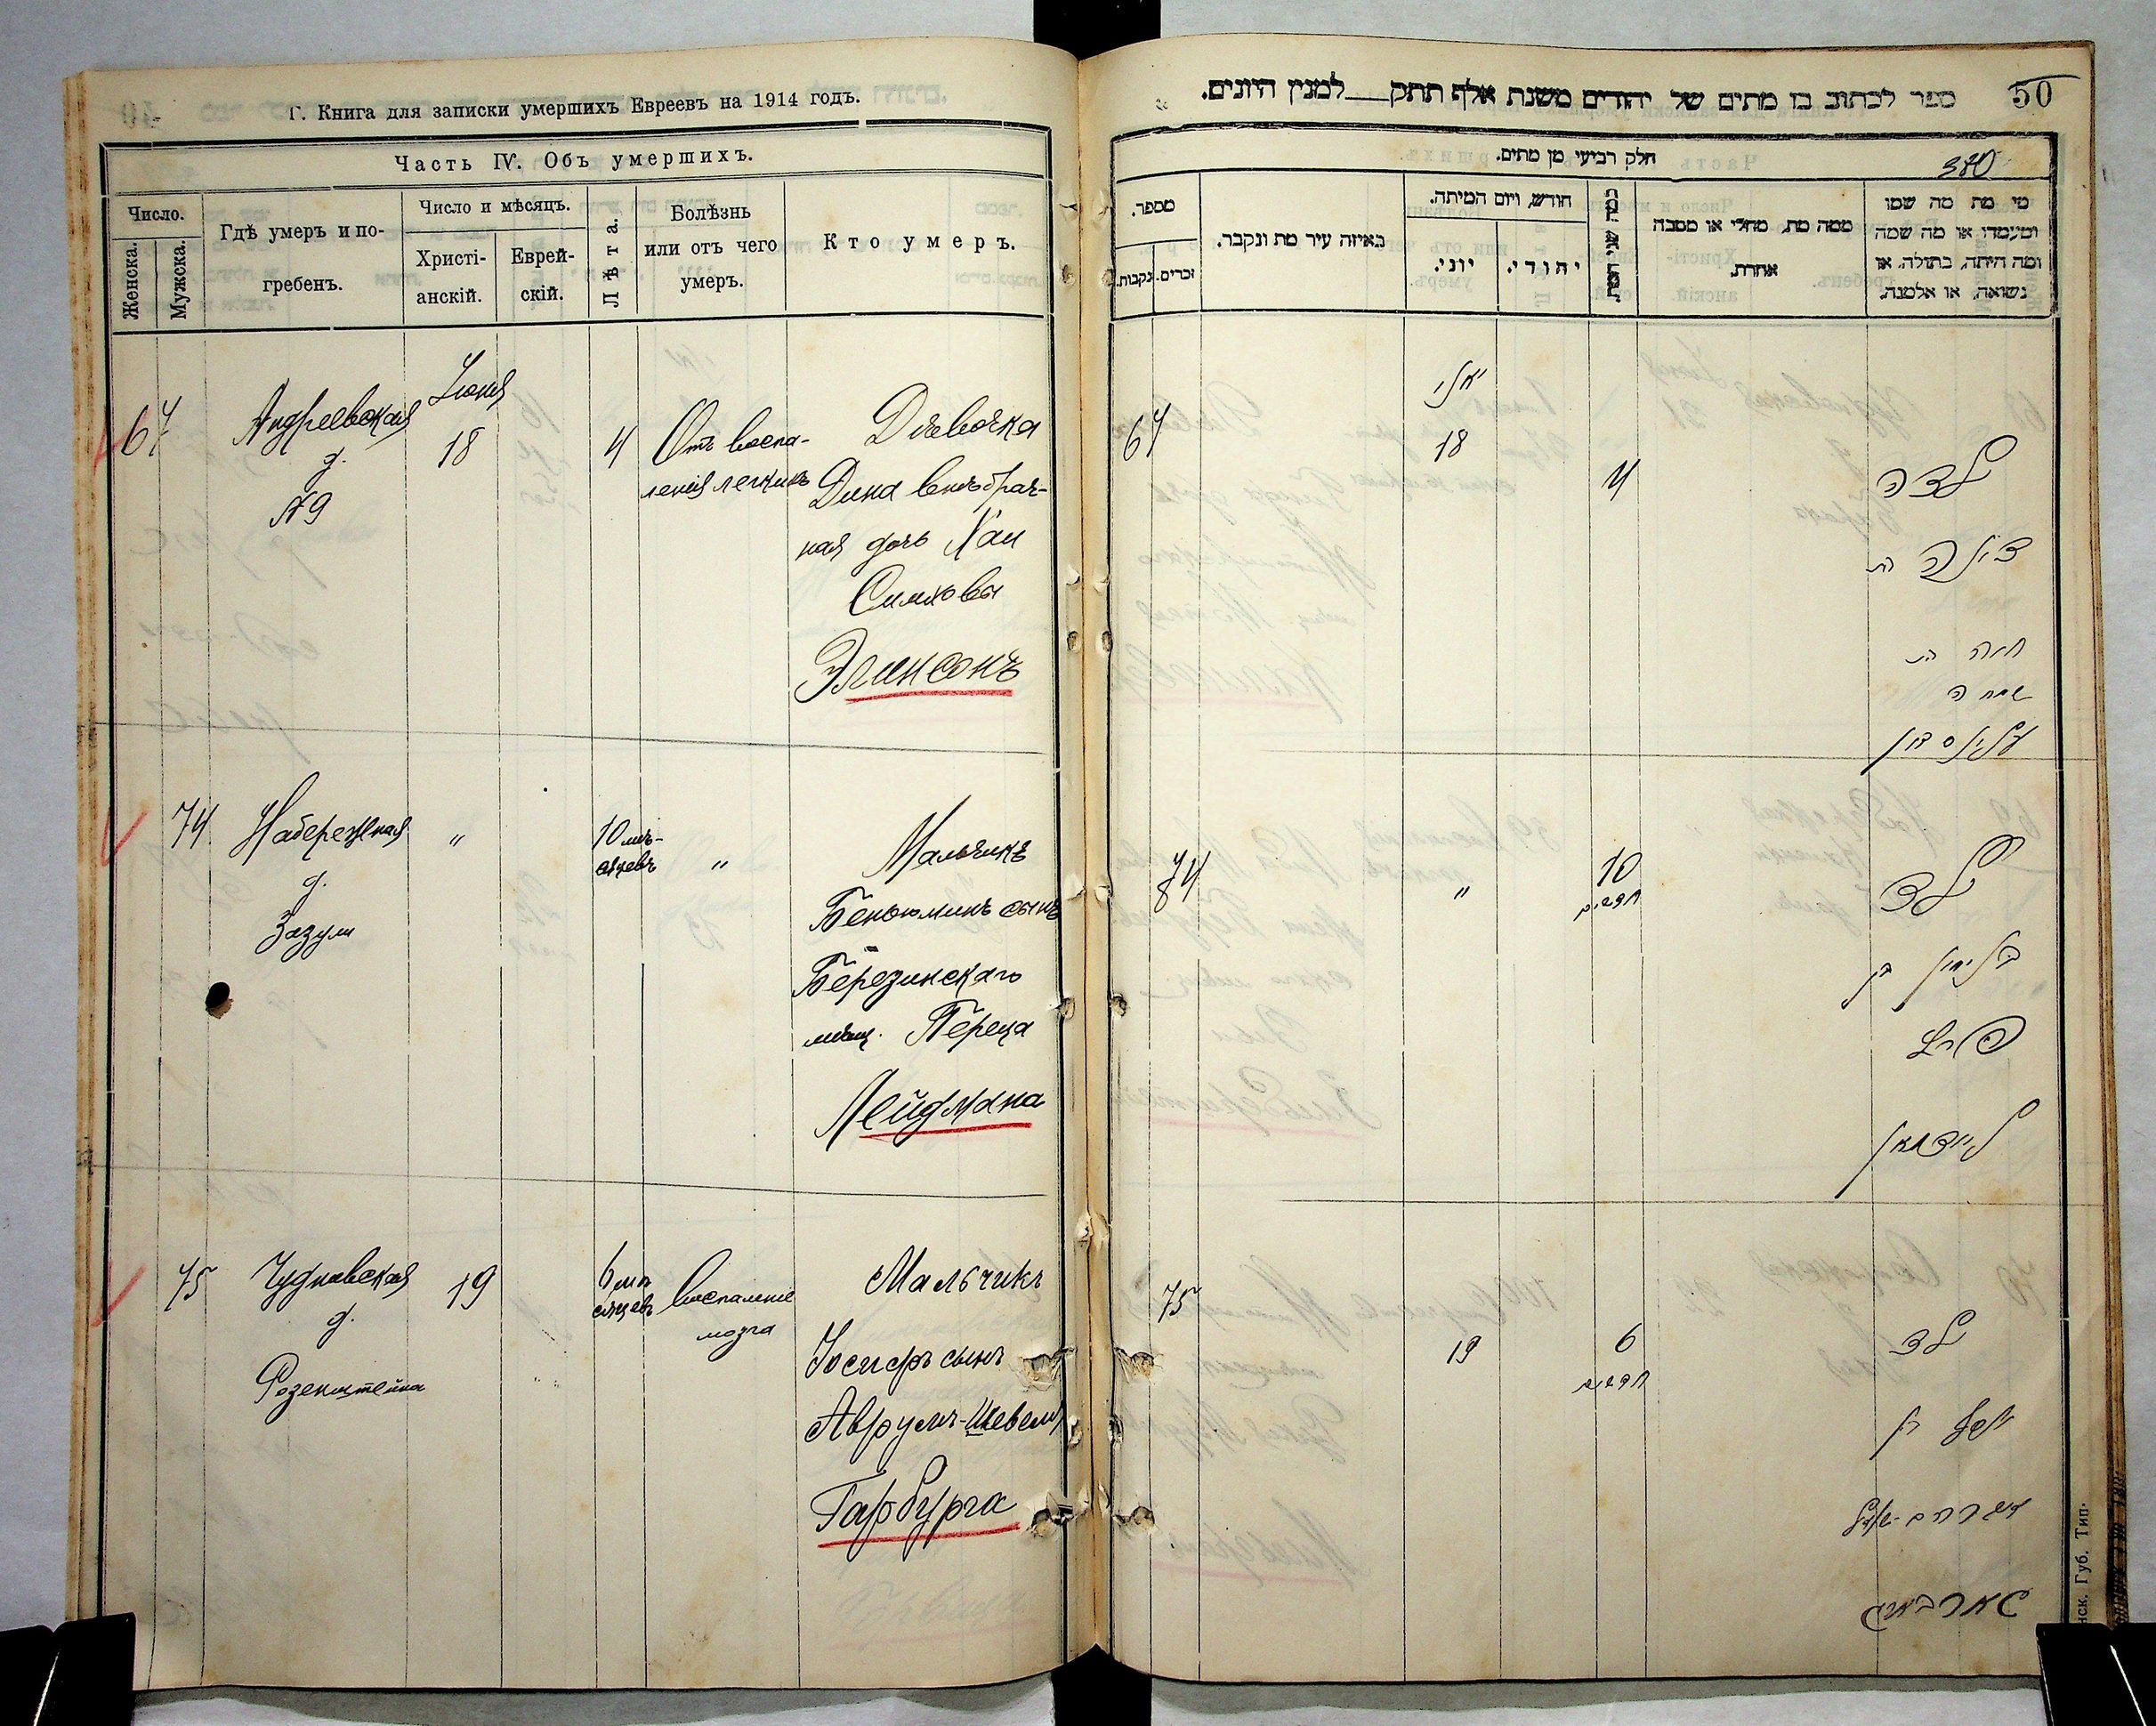 Г. Книга для записки умершихъ Евреевъ на 1914 годъ.
Часть IV. Объ умершихъ.
Число.
Женска.
Мужска.
Гдѣ умеръ и по-
гребенъ.
Число и мѣсяцъ.
Христі-
анскій.
Еврей-
скій.
Лѣта.
Болѣзнь
или отъ чего
умеръ.
Кто умеръ.
67
Андреевская
д.
№9
Июня
18
4
Отъ воспа-
ленія легкихъ
Дѣвочка
Дина внѣбрач-
ная дочь Хаи
Симховы
Элинсонъ
74
Набережная
д.
Зазули
"
10 мѣ-
сяцевъ
"
Мальчикъ
Беньюминъ сынъ
Березинскаго
мѣщ. Переца
Лейдмана
75
Чудновская
д.
Розенштейна
19
6 мѣ
сяцевъ
Воспаленіе
мозга
Мальчикъ
Іосифъ сынъ
Аврумъ-Шевеля
Гарбурга
50
ספר לכתוב בו מתים של יהודים משנת אלף תתק למנין היונים.
380
חלק רביעי מן מתים.
מספר.
נקבות.
זכרים.
באיזה עיר מת ונקבר.
חודש, ויום המיתה.
יוני.
יהודי.
ממה מת, מחלי או מסבה
אחרת.
מי מת מה שמו
ומעמדו או מה שמה
ומה היתה, בתולה, או
נשואה, או אלמנה.
67
יוני
18
4
ילדה
דינה בת
חיה בת
שמחה
עלינסאן
74
"
10
חדשים
ילד
בנימין בן
פרץ
ליידמאן
75
19
6
חדשים
ילד
יוסף בן
אברהם-שעוול
גארבורג
нск. Губ. Тип.